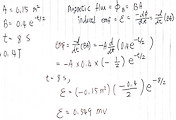 A = 0.15 m²
B = 0.4 e^(-t/2)
t = 8 s
0.4T
Magnetic flux = Φ_B = BA
Induced emf = ε = -dΦ/dt = -d/dt (BA)
EMF = -d/dt (BA) = -A d/dt (0.4 e^(-t/2))
= -A × 0.4 × (-1/2) e^(-t/2)
t = 8 s,
ε = (-0.15 m²) (-0.4/2) e^(-8/2)
ε = 0.549 mV